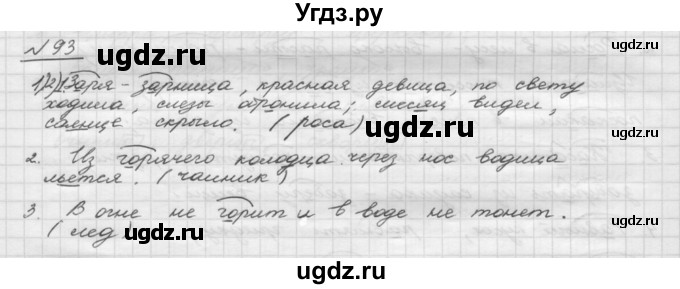 Угдз.ру
№ 93
ugdz.ru ugdz.ru
1)2) Заря - зарница, красная девица, по свету
ходила, слезы обронила; месяц видел,
солнце скрыло. (роса) ugdz.ru
2. Из горячего колодца через нос водица
льется. (чайник)
ugdz.ru
3. В огне не горит и в воде не тонет.
(лед) ugdz.ru
ugdz.ru